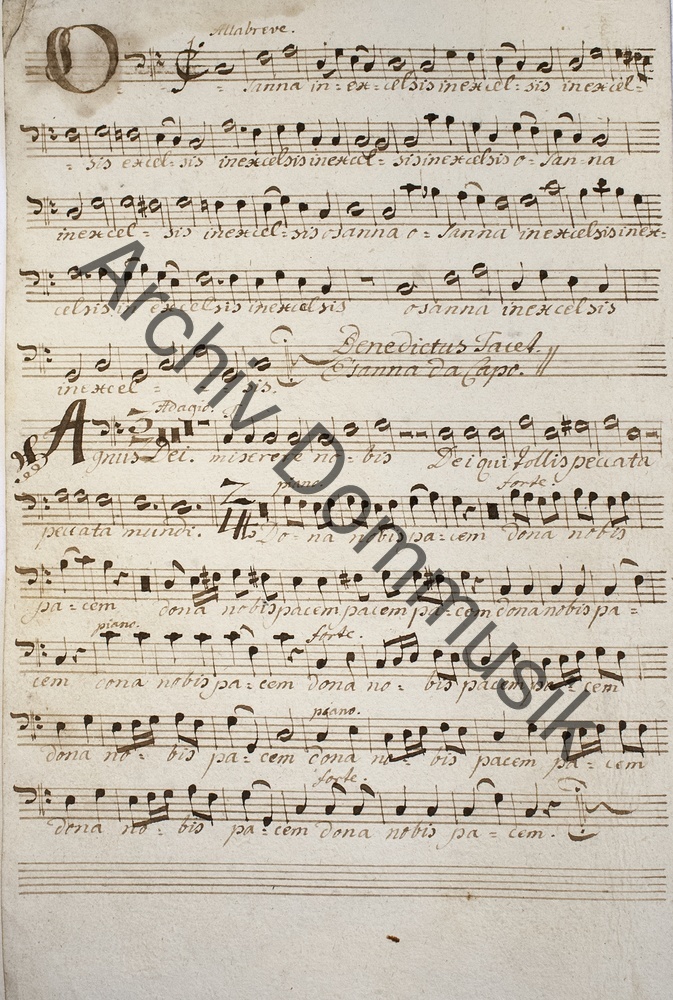 Allabreve.
O sanna in - ex - celsis in excel - sis in excel -
- sis excel - sis in excelsis in excel - sis in excelsis o - sanna
in excel - sis in excel - sis osanna o - sanna in excelsis in ex -
celsis in excelsis in excelsis osanna in excelsis
in excel - - sis. Benedictus Tacet.
Osanna da Capo.
Adagio.
Agnus Dei. miserere no - bis Dei qui tollis peccata
piano. forte.
peccata mundi. 2/4 Do - na nobis pa - cem dona nobis
pa - cem dona nobis pacem pacem pa - cem dona nobis pa -
piano. forte.
cem dona nobis pa - cem dona no - bis pacem pa - cem
piano.
dona no - bis pa - cem dona no - bis pacem pa - cem
forte.
dona no - bis pa - cem dona nobis pa - cem.
Archiv Dommusik